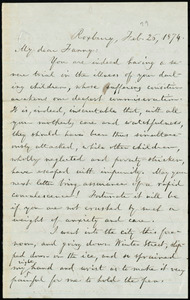 Roxbury, Feb. 25, 1874.
My dear Fanny:
You are indeed having a se-
vere trial in the illness of your dar-
ling children, whose suffering condition
awakens our deepest commiseration.
It is, indeed, inscrutable that, after all
your motherly care and watchfulness,
they should have been thus simultane-
ously attacked, while other children,
wholly neglected and poverty-stricken,
have escaped with impunity. May your
next letter bring assurance of a rapid
convalescence! Fortunate it will be
if you are not crushed by such a
weight of anxiety and care.
I went into the city this fore-
noon, and going down Winter Street, slip-
ped down on the ice, and so sprained
my hand and wrist as to make it very
painful for me to hold the pen.